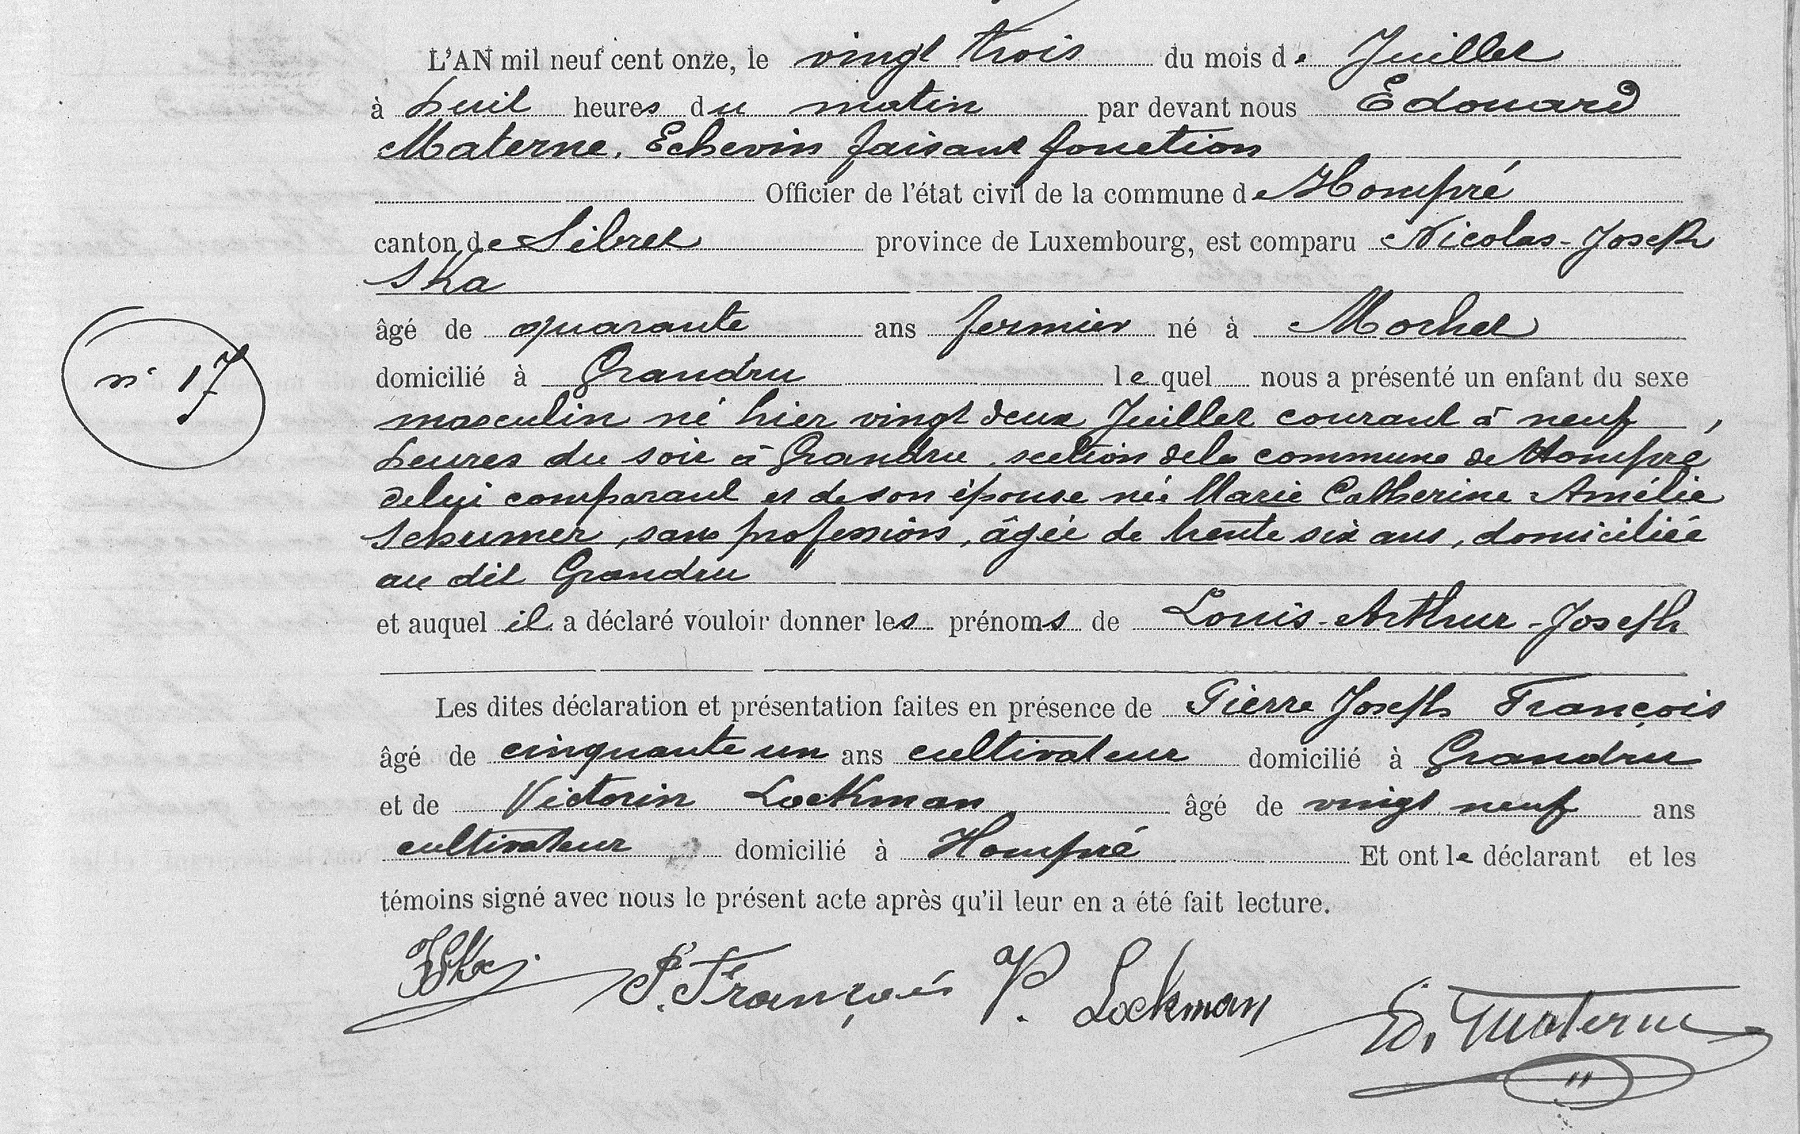 L'AN mil neuf cent onze, le vingt trois du mois de Juillet
à huit heures du matin par devant nous Edouard
Materne, Echevin faisant fonction
Officier de l'état civil de la commune de Hompré
canton de Sibret province de Luxembourg, est comparu Nicolas-Joseph
Ska
âgé de quarante ans fermier né à Morhet
n° 17
domicilié à Grandru lequel nous a présenté un enfant du sexe
masculin né hier vingt deux Juillet courant à neuf
heures du soir à Grandru, section de la commune de Hompré,
de lui comparant et de son épouse née Marie Catherine Amélie
Schumer, sans profession, âgée de trente six ans, domiciliée
au dit Grandru
et auquel il a déclaré vouloir donner les prénoms de Louis-Arthur-Joseph
Les dites déclaration et présentation faites en présence de Pierre Joseph François
âgé de cinquante un ans cultivateur domicilié à Grandru
et de Victorin Lockman âgé de vingt neuf ans
cultivateur domicilié à Hompré Et ont le déclarant et les
témoins signé avec nous le présent acte après qu'il leur en a été fait lecture.
P. François V. Lockman Ed. Materne